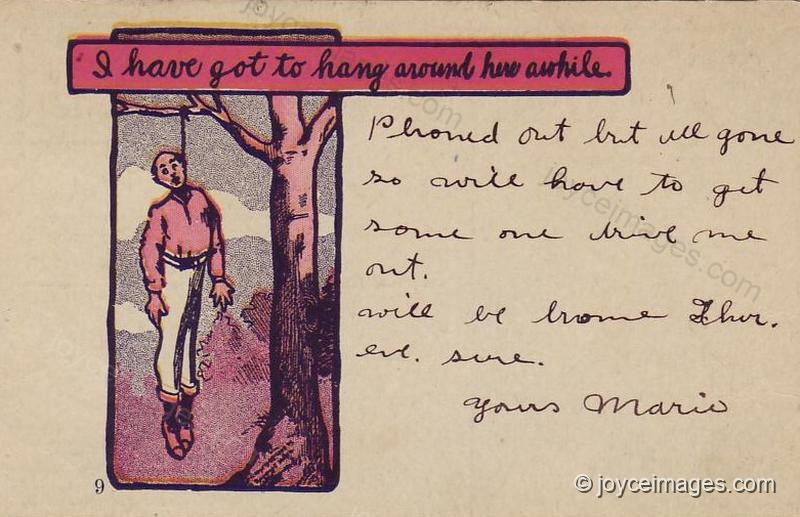 I have got to hang around here awhile.
Phoned out but all gone
so will have to get
some one drive me
out.
will be home Thur.
eve. sure.
Yours Marie
9
© joyceimages.com
joyceimages.com